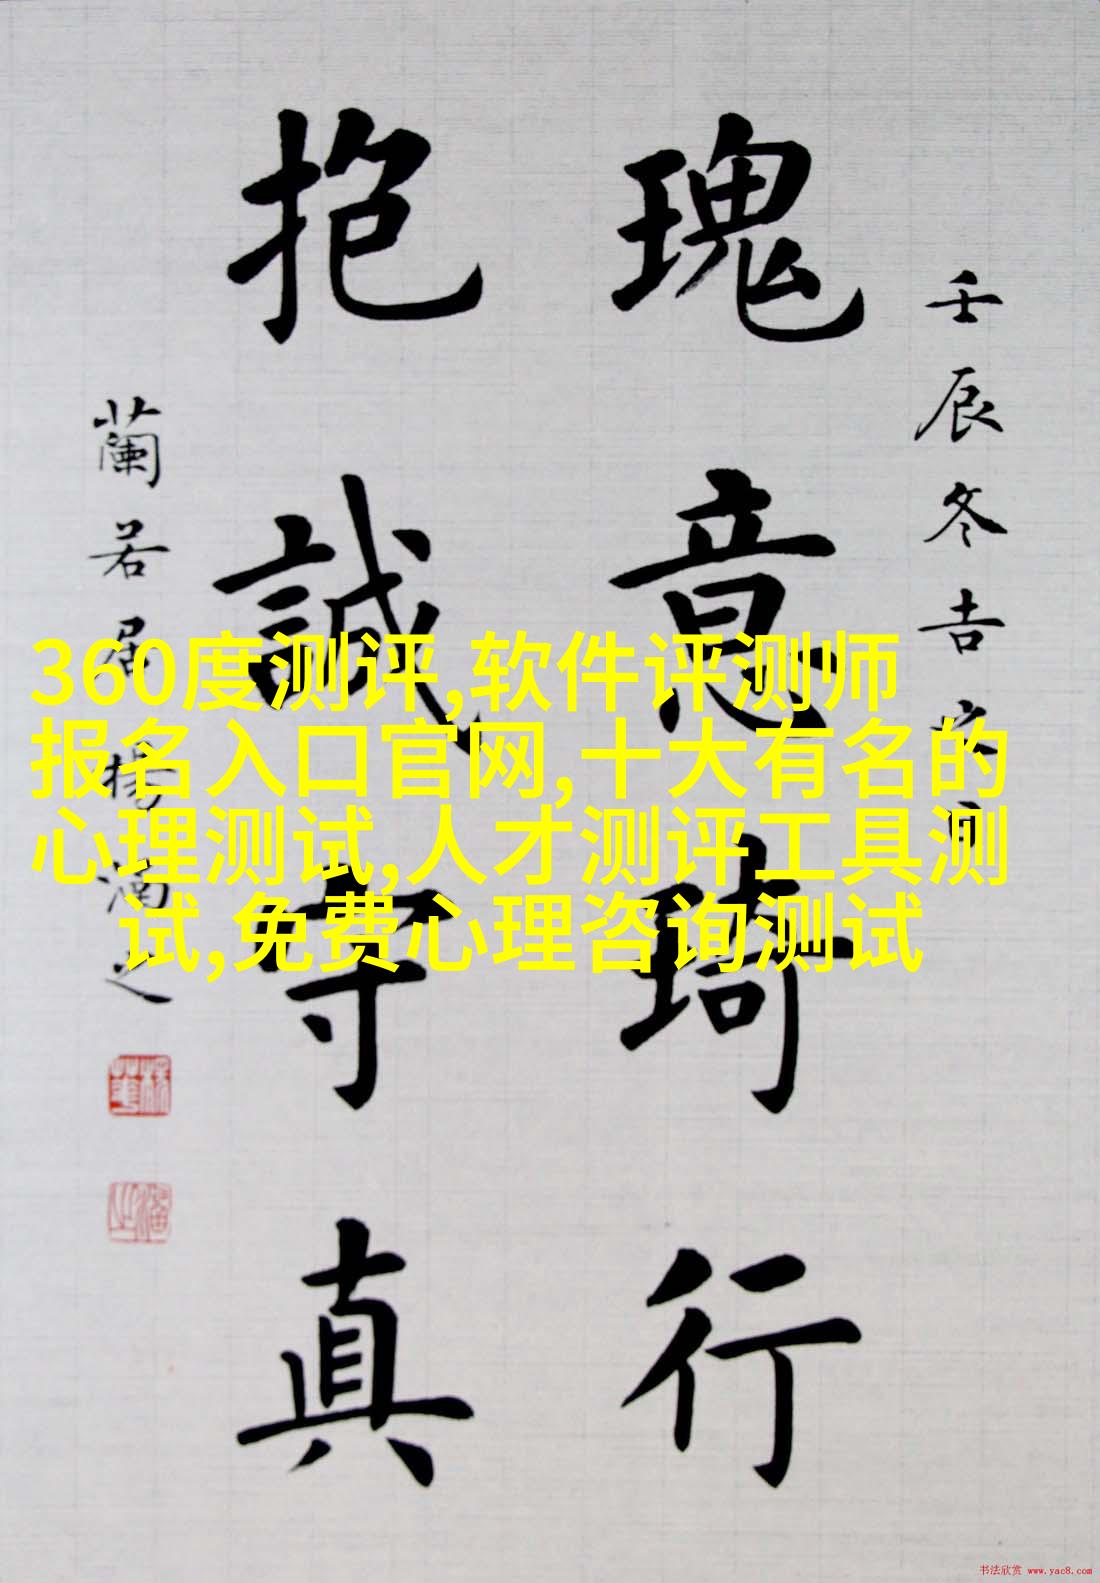 壬辰冬吉
瑰意琦行
抱誠守真
蘭若居楊
360度测评,软件评测师
报名入口官网,十大有名的
心理测试,人才测评工具测
试,免费心理咨询测试
书法欣赏 www.yac8.com